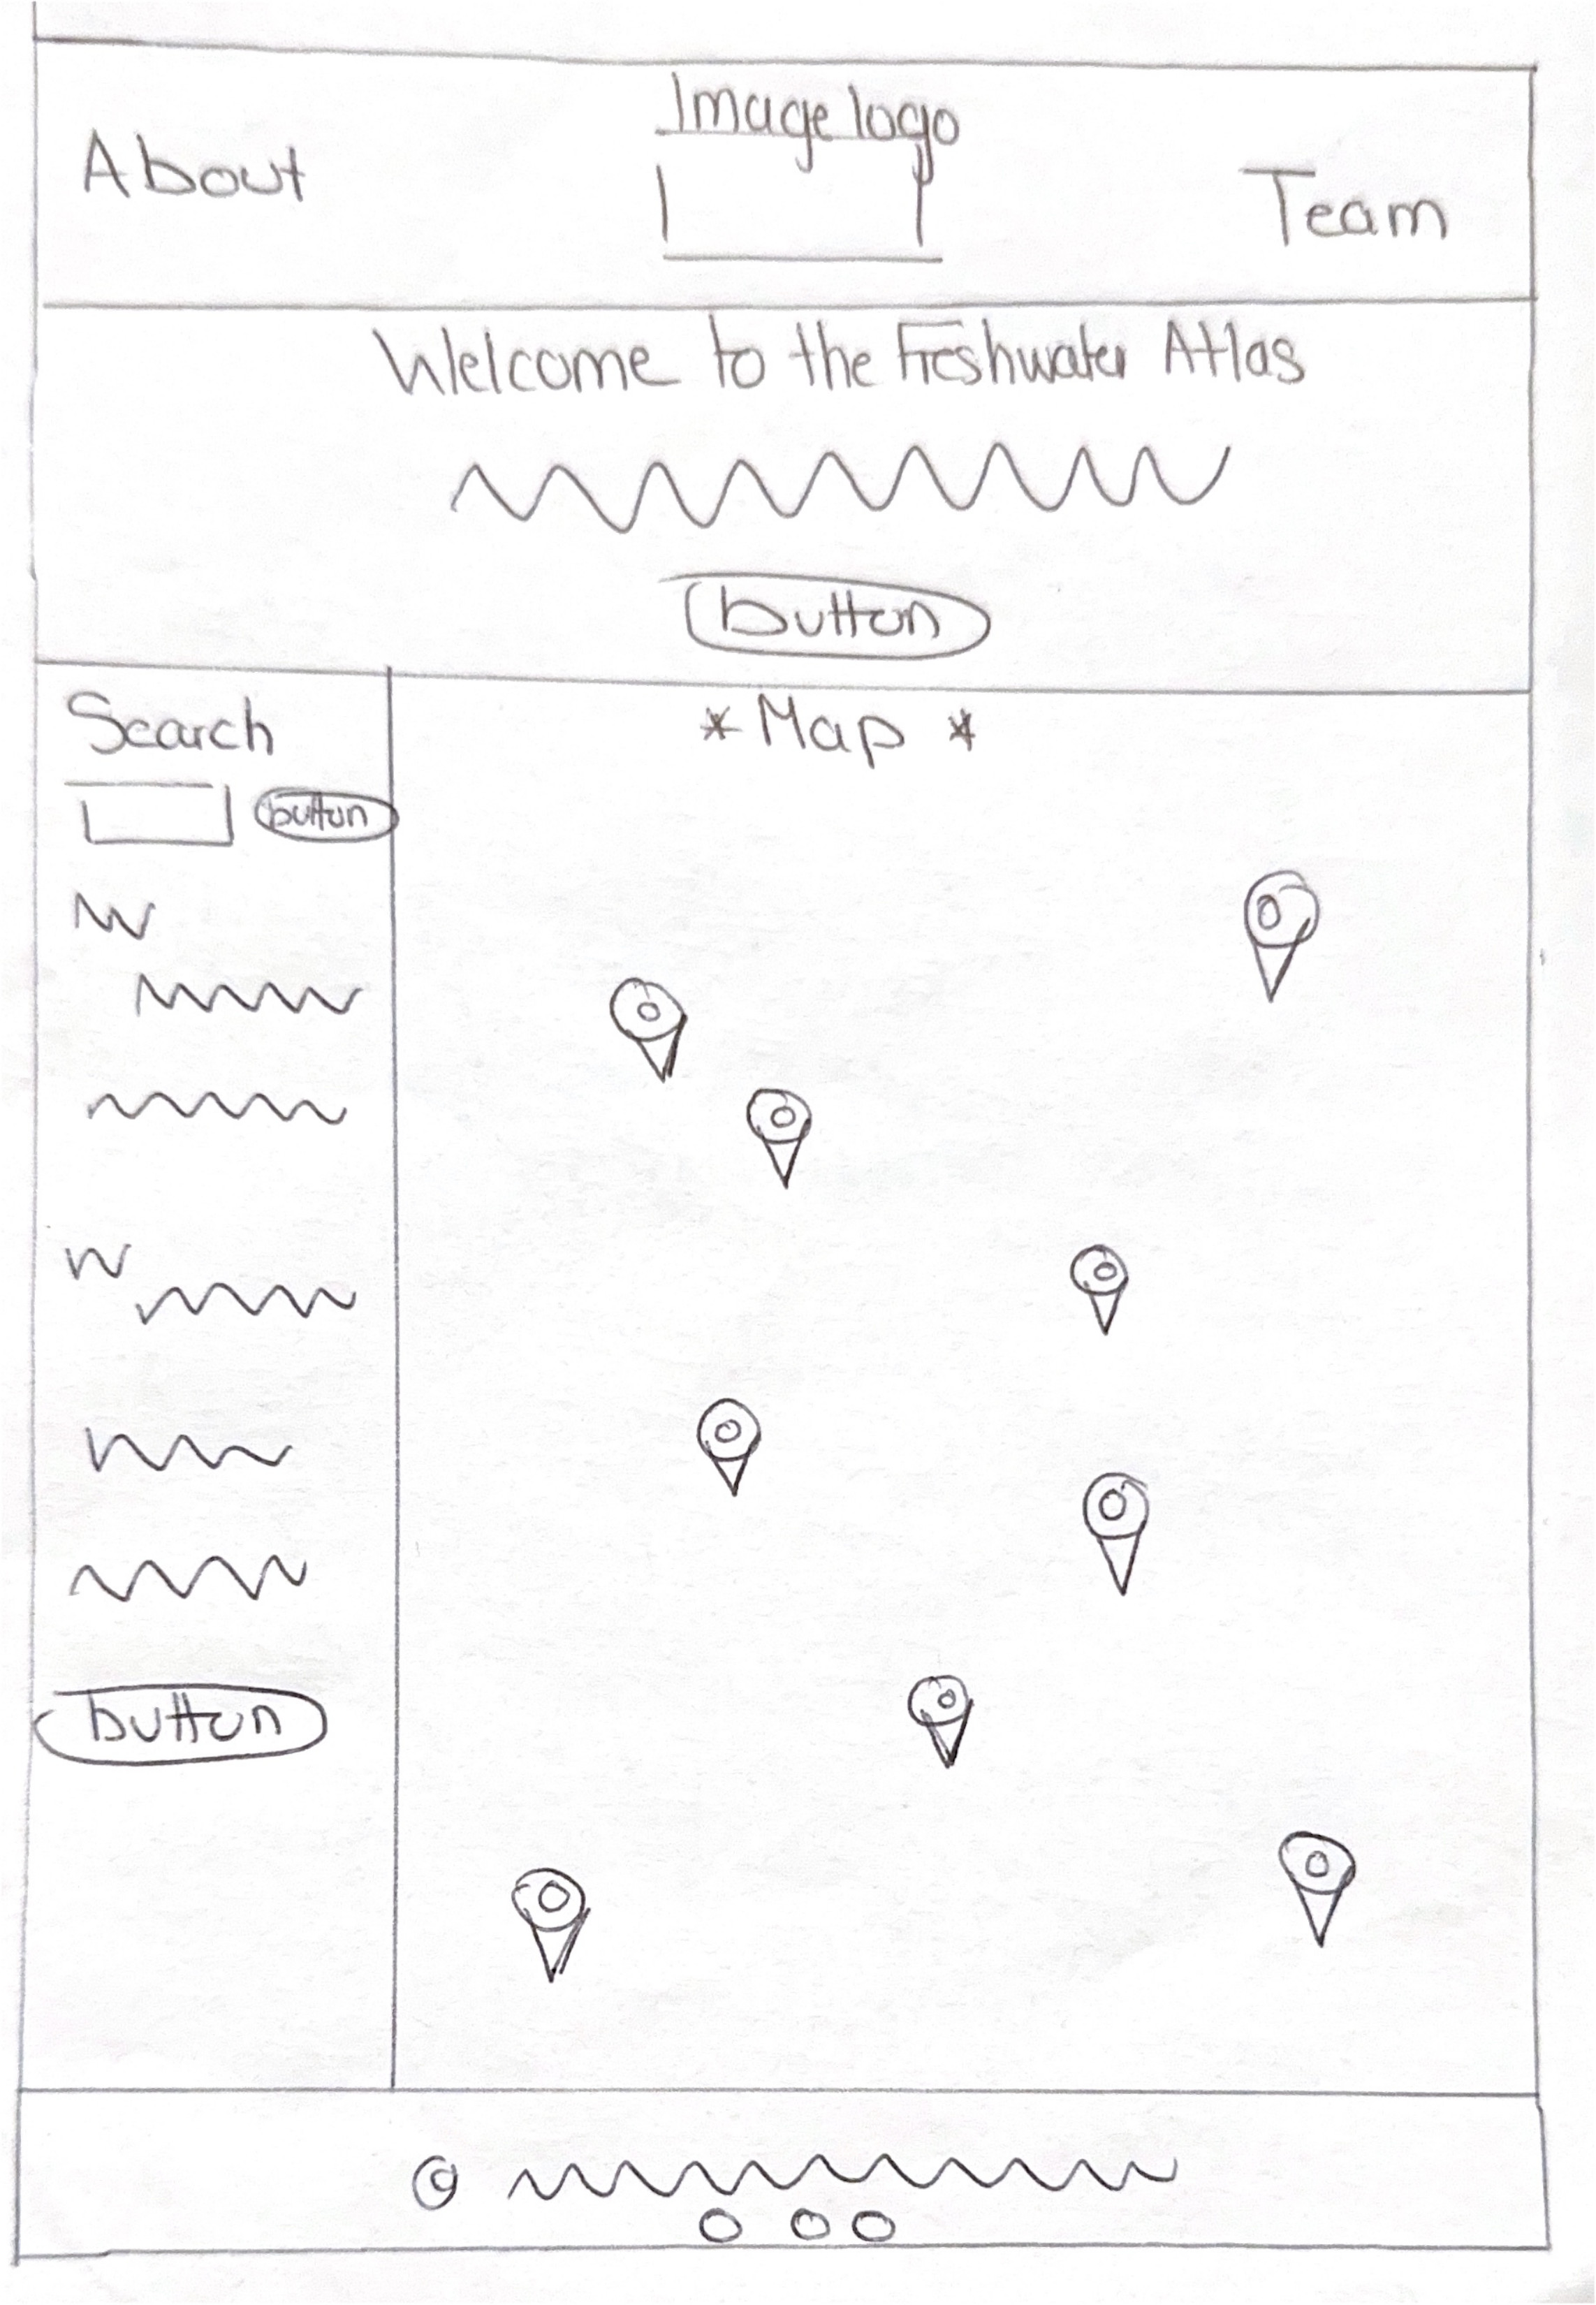 About
Image logo
Team
Welcome to the Freshwater Atlas
button
Search
button
* Map *
button
©